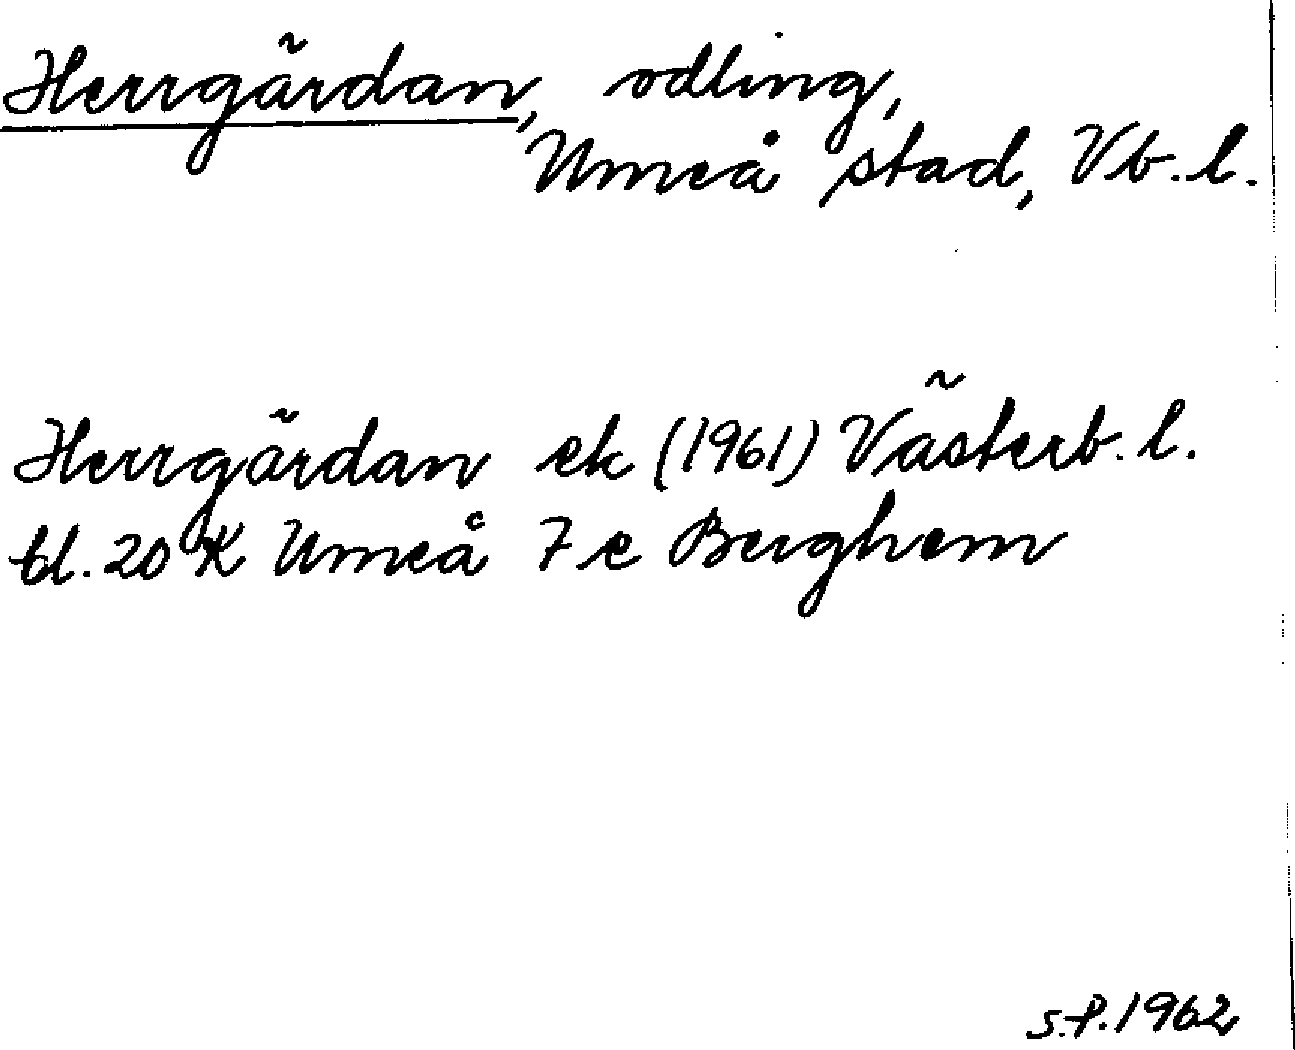 Herrgärdan, odling,
Umeå stad, Vb. l.
Herrgärdan ek (1961) Västerb. l.
bl. 20 K Umeå 7 e Berghem
S.P. 1962